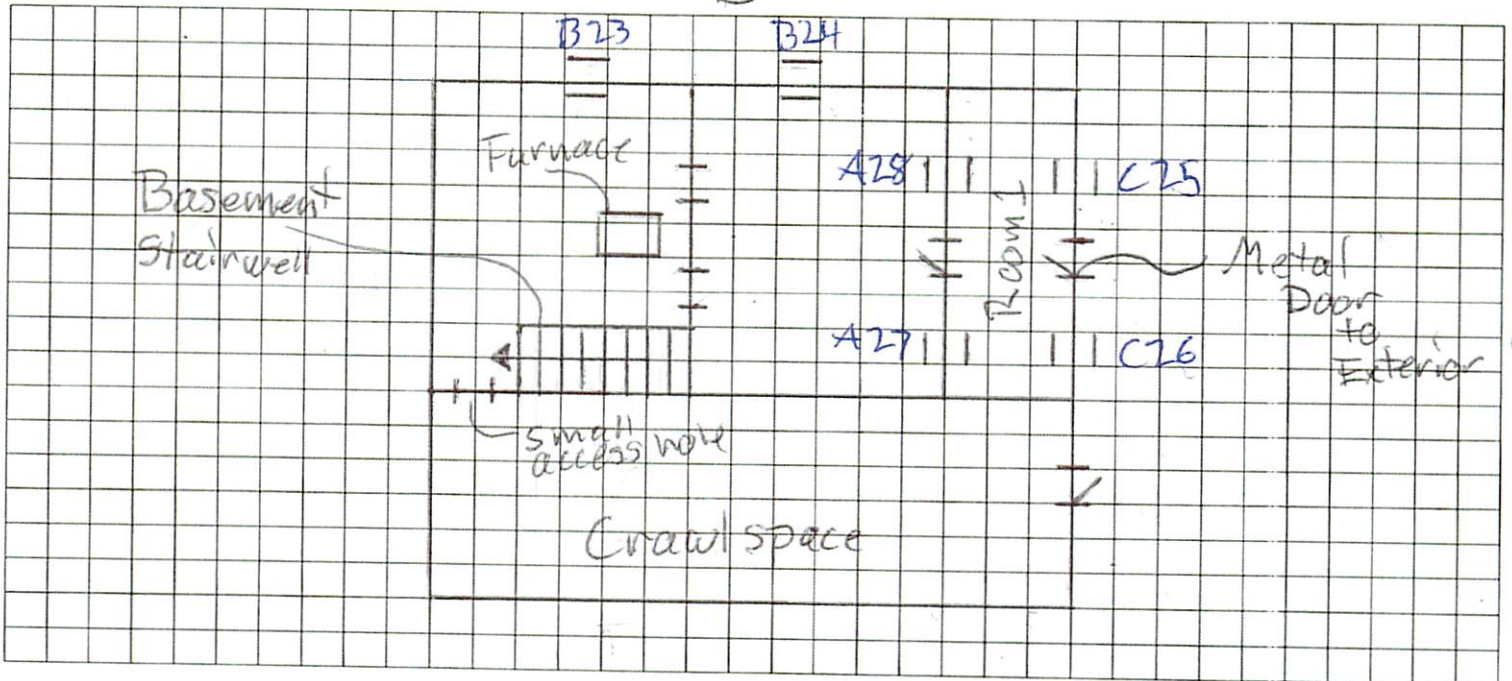 B23
B24
Furnace
A28
C25
Basement
Stairwell
Room 1
Metal
Door
to
Exterior
A27
C26
small
access hole
Crawl space